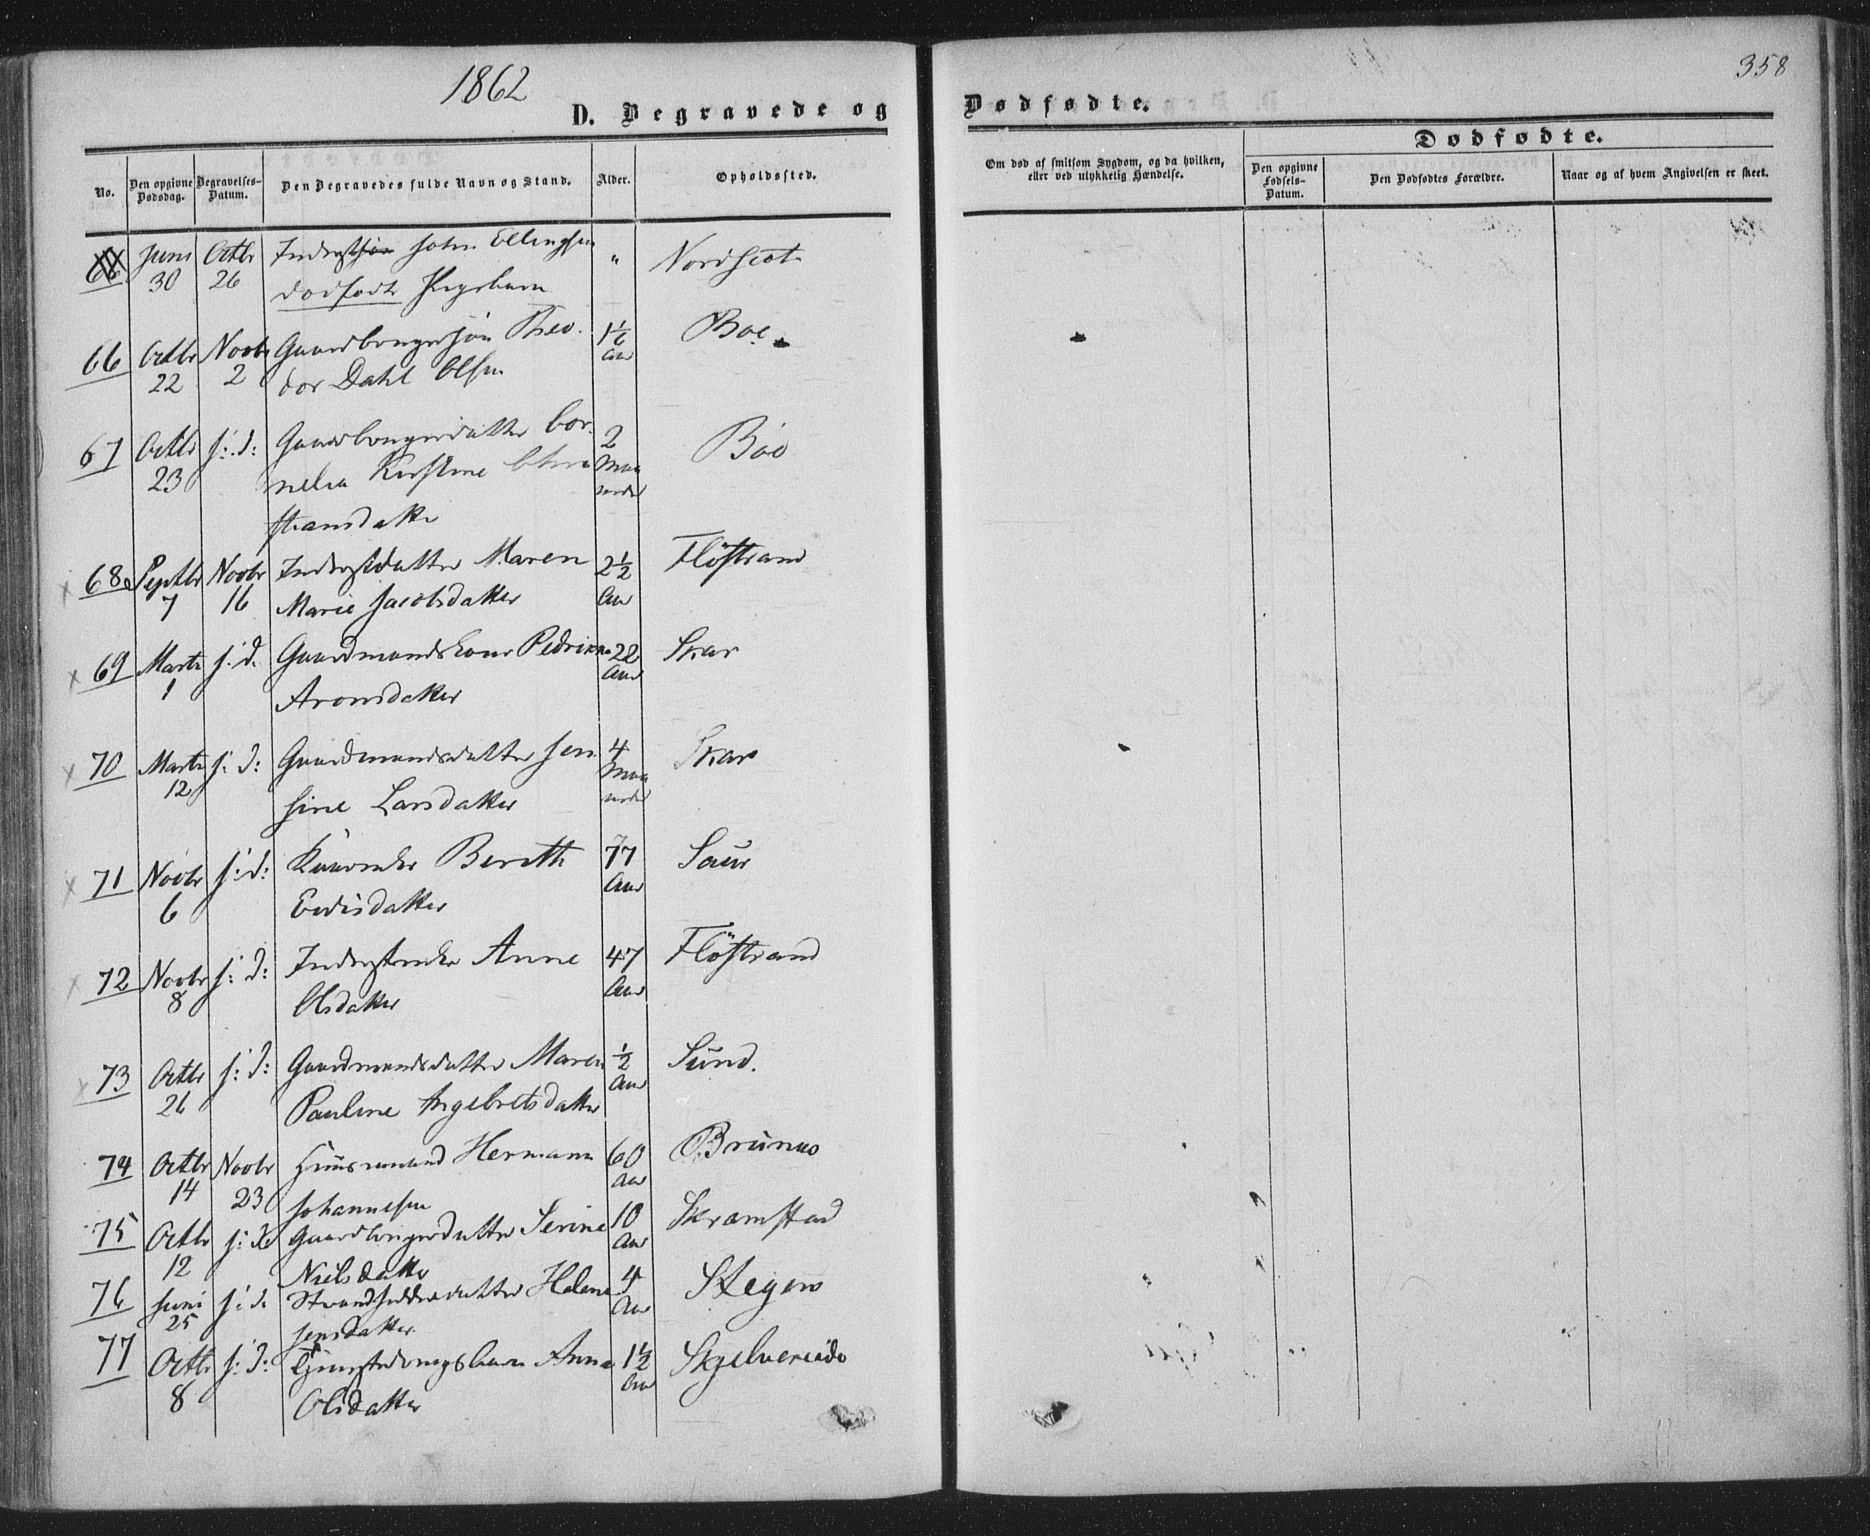 1862
358
D. Begravede og Dødfødte.
No.
Den opgivne Dødsdag.
Begravelses-Datum.
Den Begravedes fulde Navn og Stand.
Alder.
Opholdssted.
Om død af smitsom Sygdom, og da hvilken, eller ved ulykkelig Hændelse.
Dødfødte.
Den opgivne Fødsels-Datum.
Den Dødfødtes Forældre.
Naar og af hvem Angivelsen er skeet.
Juni Octbr John Ellingsen " Nordscot
30 26 dødfødte
66 Octbr Novbr Gaardbrugersøn Theo- 1 1/6 Boe
22 2 dor Dahl Olsen Aar
67 Octbr s: d: Gaardbrugerdatter Cor- 2 Böe
23 nelia Kirstine Chri- Maa-
stiansdatter neder
68 Septbr Novbr Inderstdatter Maren 2 1/2 Flöstrand
7 16 Marie Jacobsdatter Aar
69 Marts s. d. Gaardmandskone Pedrikka 22 Skar
1 Aronsdatter Aar
70 Marts s: d: Gaardmandsdatter Jen- 4 Skar
12 sine Larsdatter Maa-
neder
71 Novbr s: d: Berith 77 Saur
6 Evdisdatter Aar
72 Novbr s: d: Anne 47 Flöstrand
8 Olsdatter Aar
73 Octbr s: d: Gaardmandsdatter Maren 1/2 Sund.
26 Pauline Ingebretsdatter Aar
74 Octbr Novbr Huusmand Hermann 60
14 23 Johannesen Aar
75 Octbr s: d: Gaardbrugerdatter Serine 10 Skramstad
12 Nielsdatter Aar
76 Juni s: d. Strandsidderdatter Helene 4 Stegen
25 Jensdatter Aar
77 Octbr s: d: Anna 1 1/2
8 Olsdatter Aar